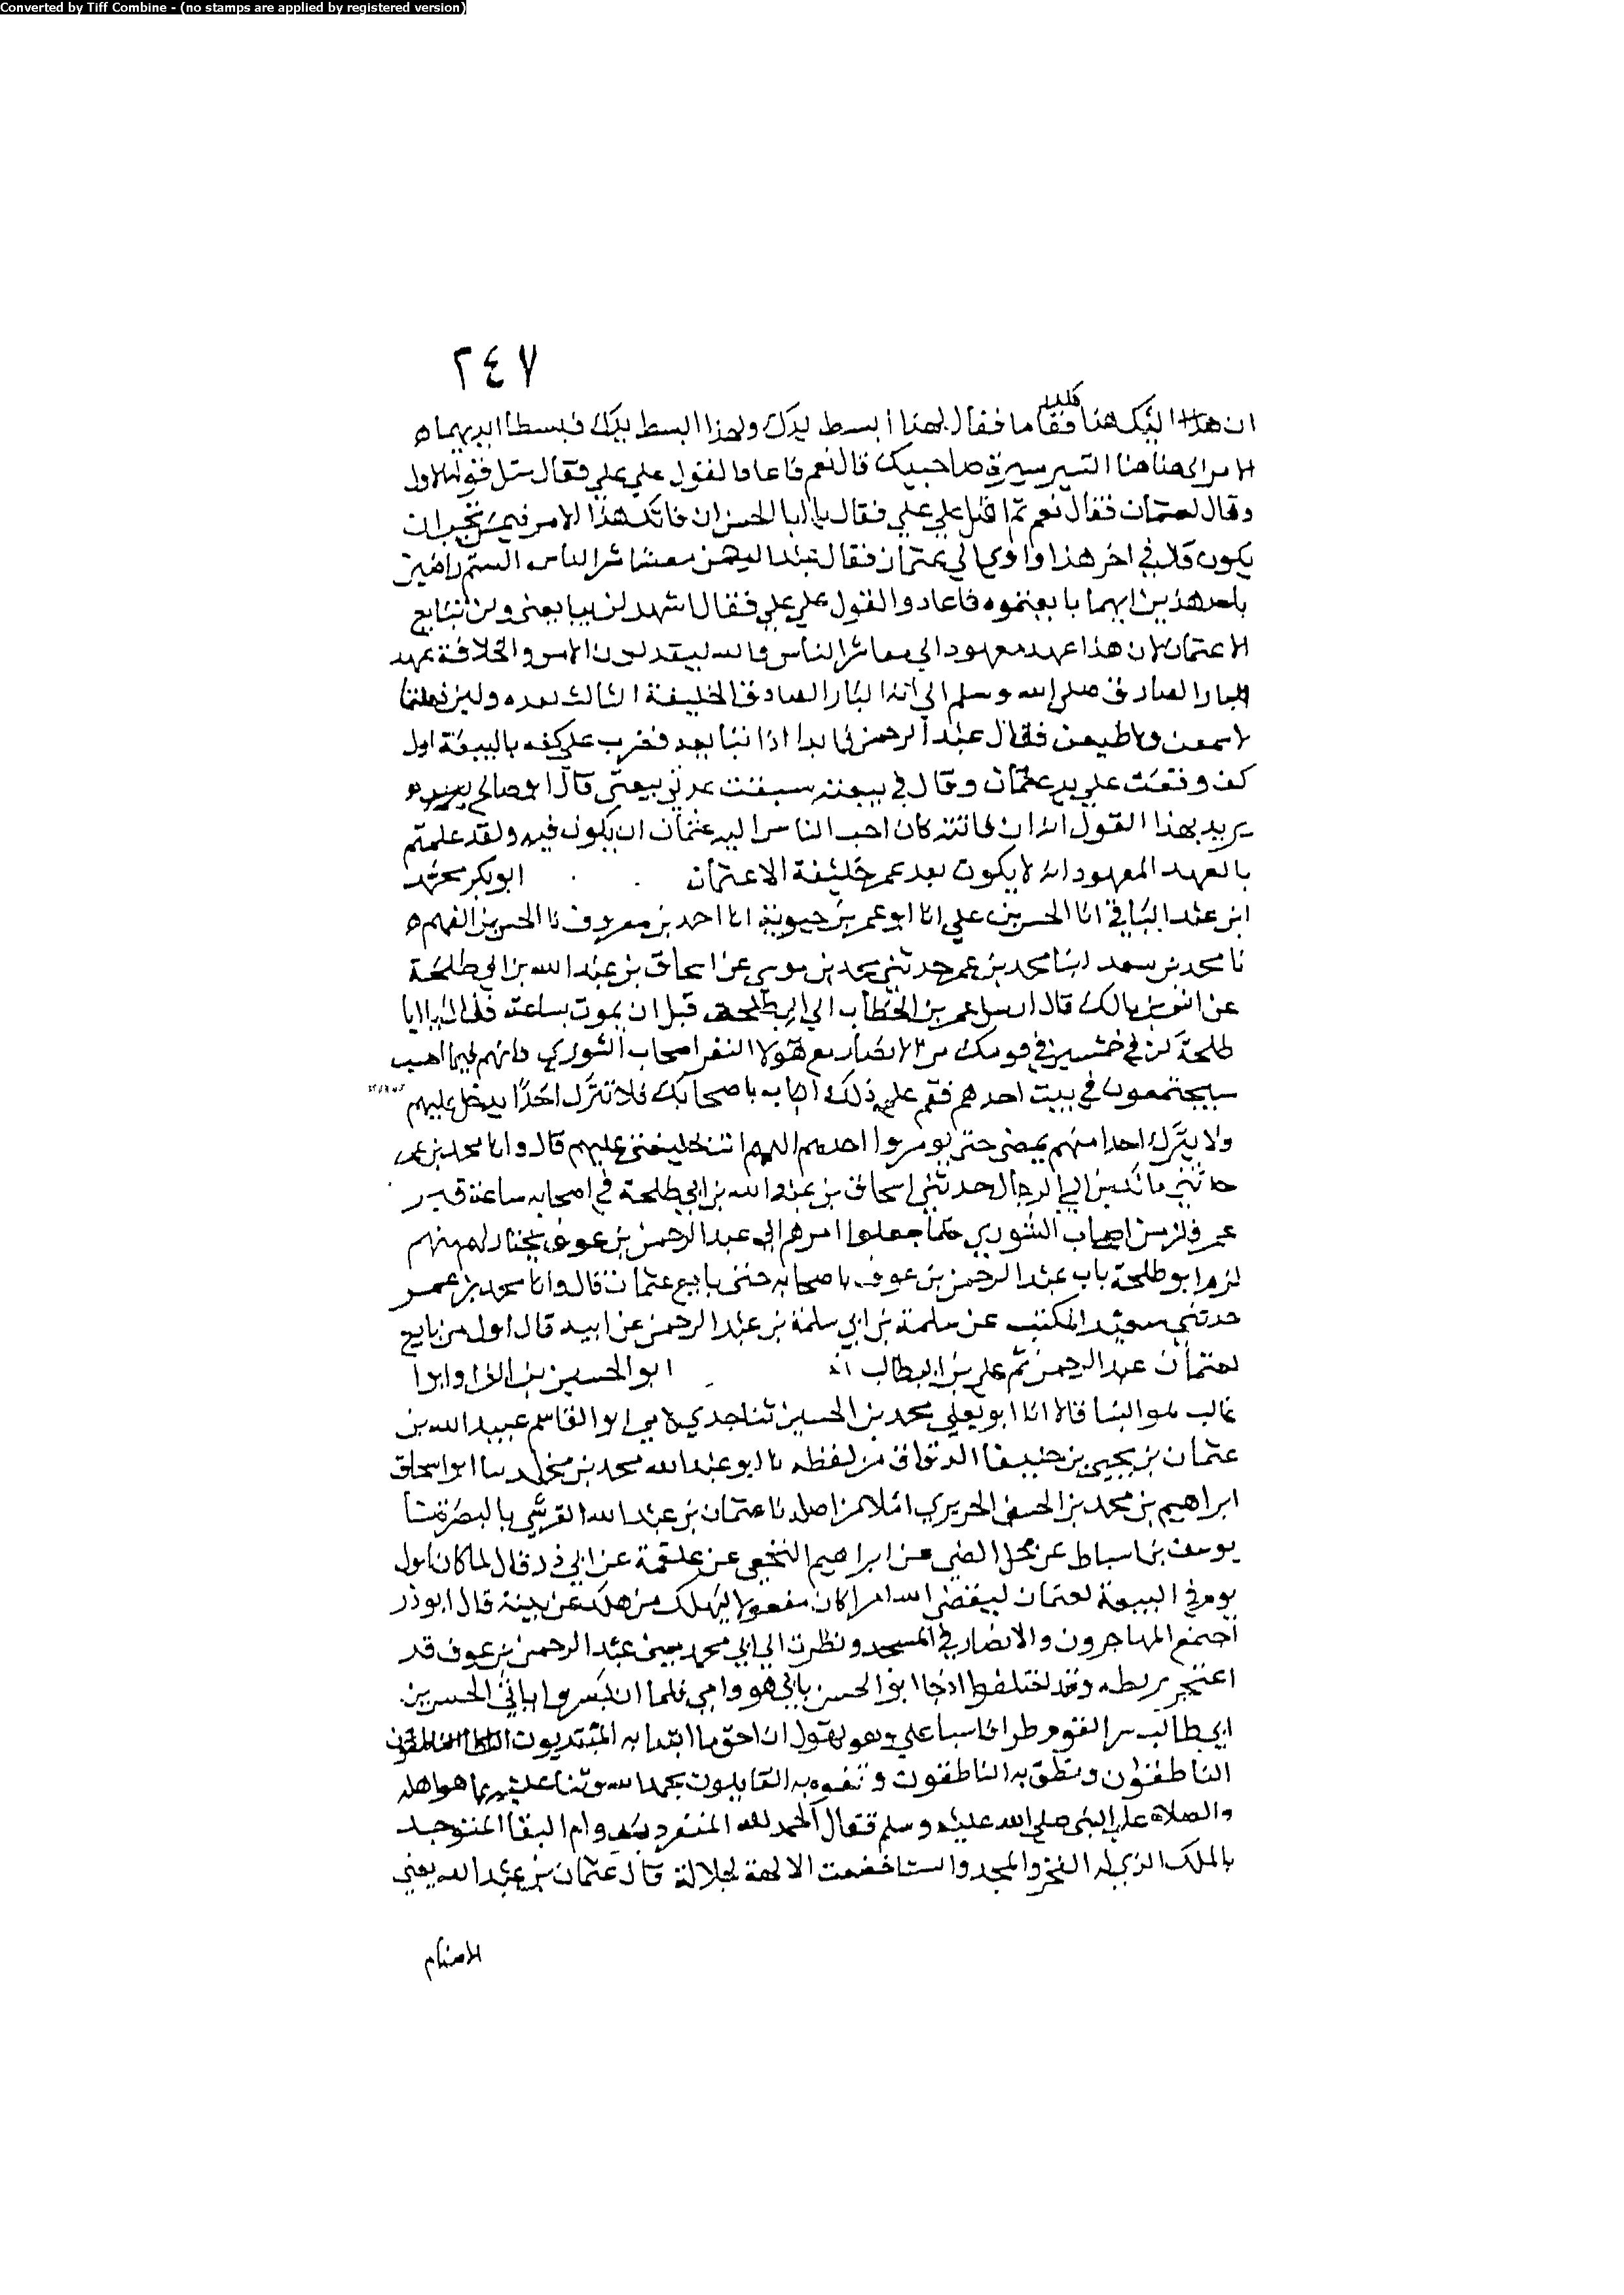 Converted by Tiff Combine - (no stamps are applied by registered version)
٢٤٧
ان هذا اليك هنا فقاما فقال لهذا ابسط يدك ولهذا ابسط يدك فبسطا ايديهما
الامر الى هاهنا التسير سيرة صاحبيك قال نعم فاعاد القول على علي فقال مثل قوله الاول
وقال لعثمان فقال نعم ثم اقبل على علي فقال يا ابا الحسن ان فاتك هذا الامر فيمن تحب ان
يكون قال في اخر هذا واومى الى عثمان فقال عبد الرحمن معشر الناس الستم راضين
باحد هذين ايهما بايعتموه فاعادوا القول على علي فقال اشهد لن يبايعني ولن تبايع
الا عثمان لان هذا عهد معهود الي معاشر الناس والله ليقلدن الامر والخلافة بعهد
البار الصادق صلى الله وسلم الي انه البار الصادق الخليفة الثالث بعده ولئن فعلتما
لاسمعن ولاطيعن فقال عبد الرحمن فابدا اذا نبايعه فضرب على كفه بالبيعة اول
كف وقعت على يد عثمان وقال في بيعته سبقت عدتي بيعتي قال ابو صالح
يريد بهذا القول انه ان فاتته كان احب الناس اليه عثمان ان يكون فيه ولقد علمتم
بالعهد المعهود انه لا يكون بعد عمر خليفة الا عثمان ابو بكر محمد
ابن عبد الباقي انا الحسن بن علي انا ابو عمر بن حيوية انا احمد بن معروف نا الحسين بن الفهم
نا محمد بن سعد انبا محمد بن عمر حدثني محمد بن موسى عن اسحاق بن عبد الله بن ابي طلحة
عن انس بن مالك قال ارسل عمر بن الخطاب الى ابي طلحة قبل ان يموت بساعة فقال يا ابا
طلحة كن في خمسين في قومك من الانصار مع هولا النفر اصحاب الشورى فانهم فيما احسب
سيجتمعون في بيت احدهم فقم على ذلك الباب باصحابك فلا تترك احدا يدخل عليهم
ولا يترك احدا منهم يمضي حتى يومروا احدهم اللهم انت خليفتي عليهم قال وانا محمد بن عمر
حدثني مالك بن ابي الرجال حدثني اسحاق بن عبد الله بن ابي طلحة في اصحابه ساعة قبر
عمر فلزم اصحاب الشورى فلما جعلوا امرهم الى عبد الرحمن بن عوف يختار لهم منهم
لزم ابو طلحة باب عبد الرحمن بن عوف باصحابه حتى بايع عثمان قال وانا محمد بن عمر
حدثني سعيد المكتب عن سلمة بن ابي سلمة بن عبد الرحمن عن ابيه قال اول من بايع
لعثمان عبد الرحمن ثم علي بن ابي طالب ابو الحسين بن الفرا وابوا
غالب بن البنا قالا انا ابو يعلى محمد بن الحسين ثنا جدي لامي ابو القاسم عبيد الله بن
عثمان بن يحيى بن حنيفا الدقاق من لفظه نا ابو عبد الله محمد بن مخلد نا ابو اسحاق
ابراهيم بن محمد بن الحسن الحريري املا من اصله نا عثمان بن عبد الله القرشي بالبصرة نا
يوسف بن اسباط عن محل الضبي عن ابراهيم النخعي عن علقمة عن ابي ذر قال لما كان اول
يوم في البيعة لعثمان ليقضي الله امرا كان مفعولا ليهلك من هلك عن بينة قال ابو ذر
اجتمع المهاجرون والانصار في المسجد ونظرت الى ابي محمد يعني عبد الرحمن بن عوف قد
اعتجر بريطه وقد اختلفوا اذ جا ابو الحسن بابي هو وامي فلما ان بصروا بابي الحسن بن
ابي طالب سر القوم طرا فانشا علي وهو يقول ان احق ما ابتدا به المبتديون
الناطقون ونطق به الناطقون وتفوه به القايلون حمد الله وثنا عليه بما هو اهله
والصلاة على النبي صلى الله عليه وسلم فقال الحمد لله المتفرد بدوام البقا المتوحد
بالملك الذي له الفخر والمجد والسنا خضعت الالهة لجلاله قال عثمان بن عبد الله يعني
الاصنام